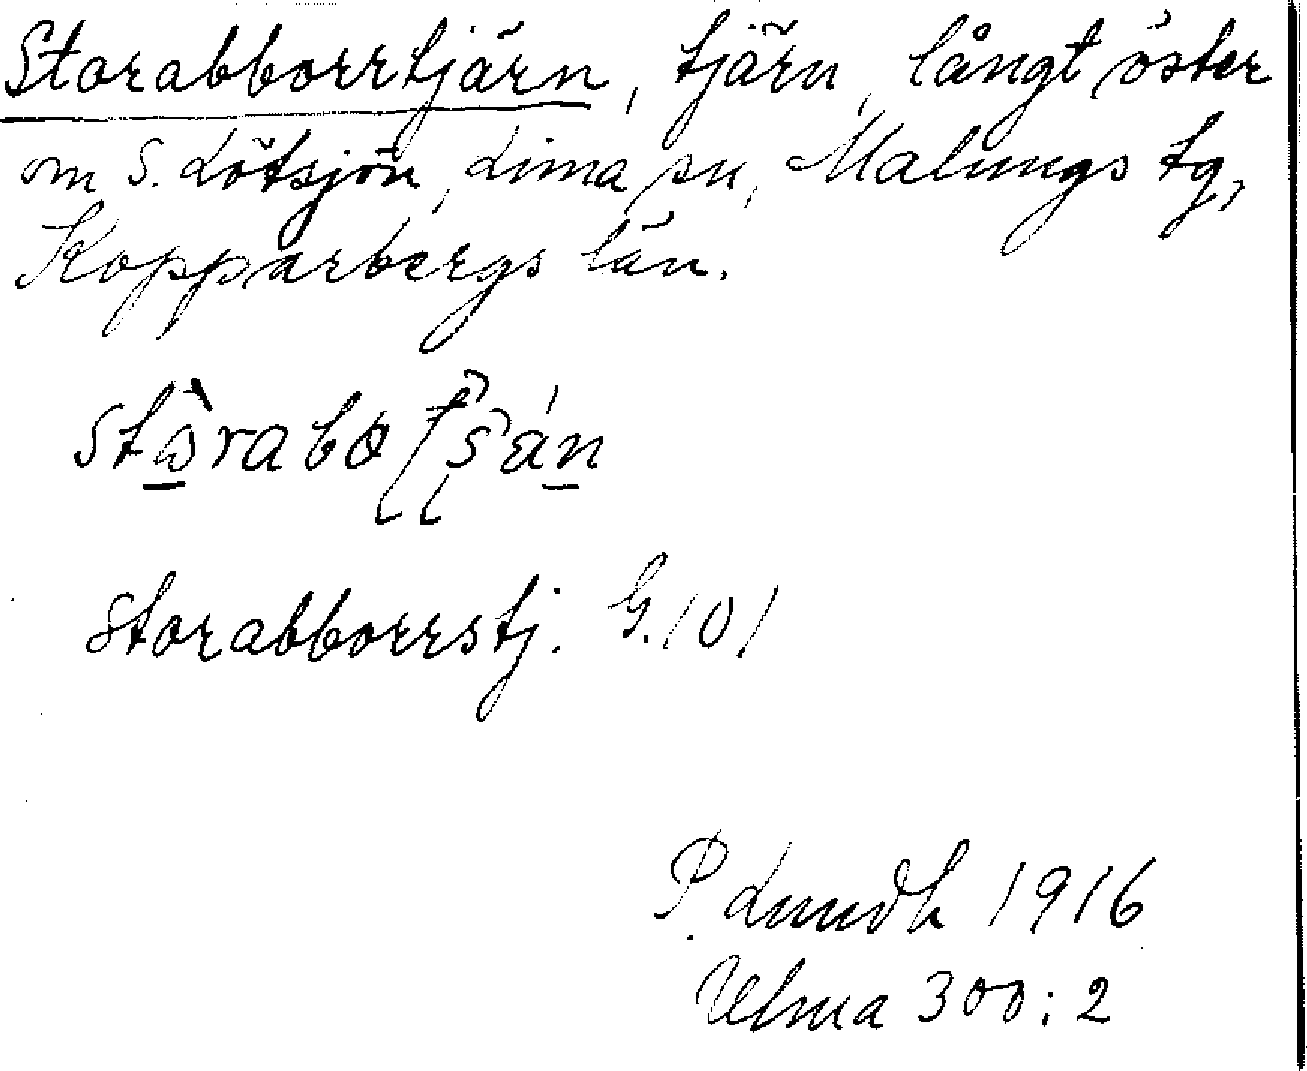 Storabborrtjärn, tjärn, långt öster
om S. Lötsjön, Lima sn, Malungs tg,
Kopparbergs län.
Storabborrstj. G. 101
P. Lundh 1916
Ulma 300:2